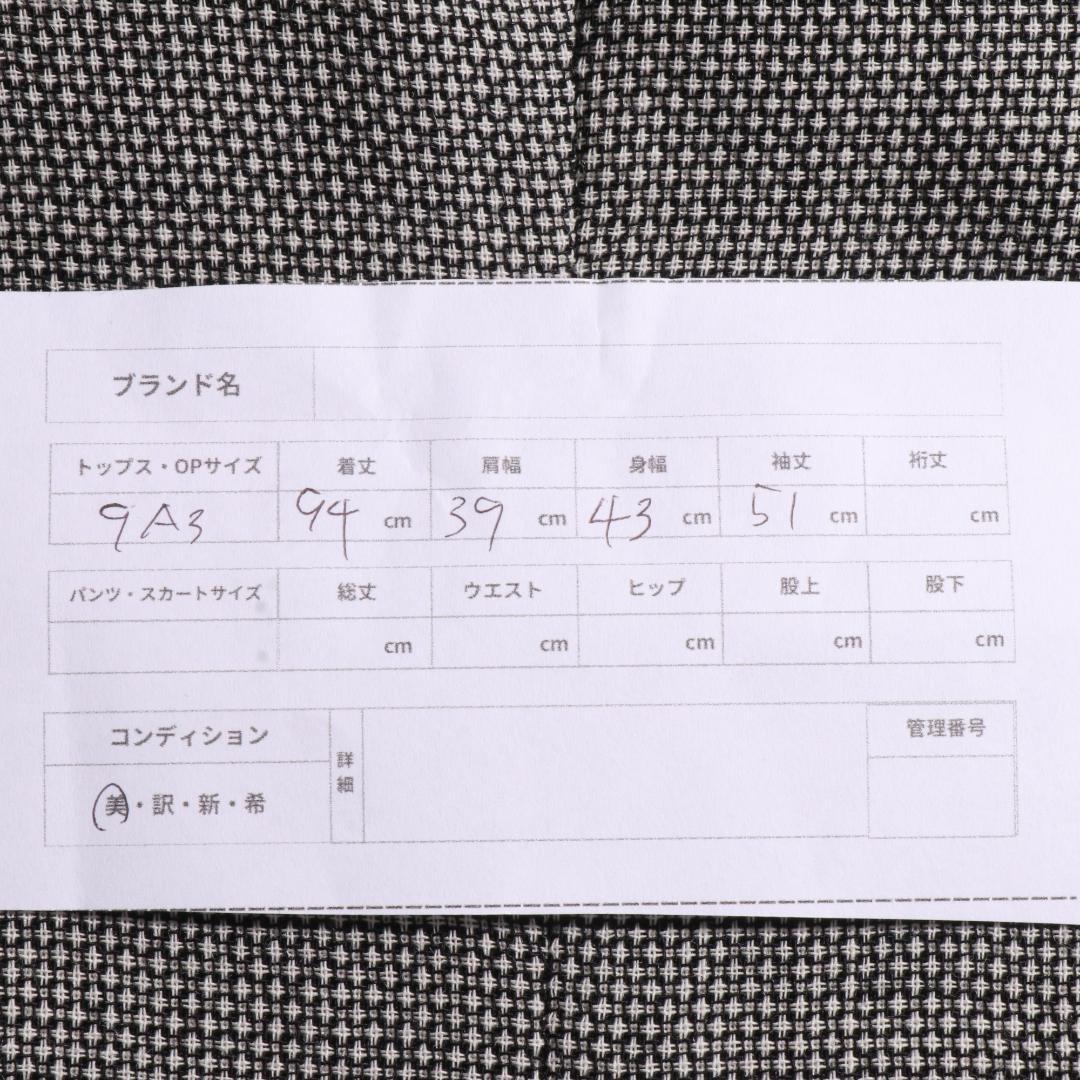 ブランド名
トップス・OPサイズ 着丈 肩幅 身幅 袖丈 裄丈
9A3 94 cm 39 cm 43 cm 51 cm cm
パンツ・スカートサイズ 総丈 ウエスト ヒップ 股上 股下
cm cm cm cm cm
コンディション 詳細 管理番号
美・訳・新・希